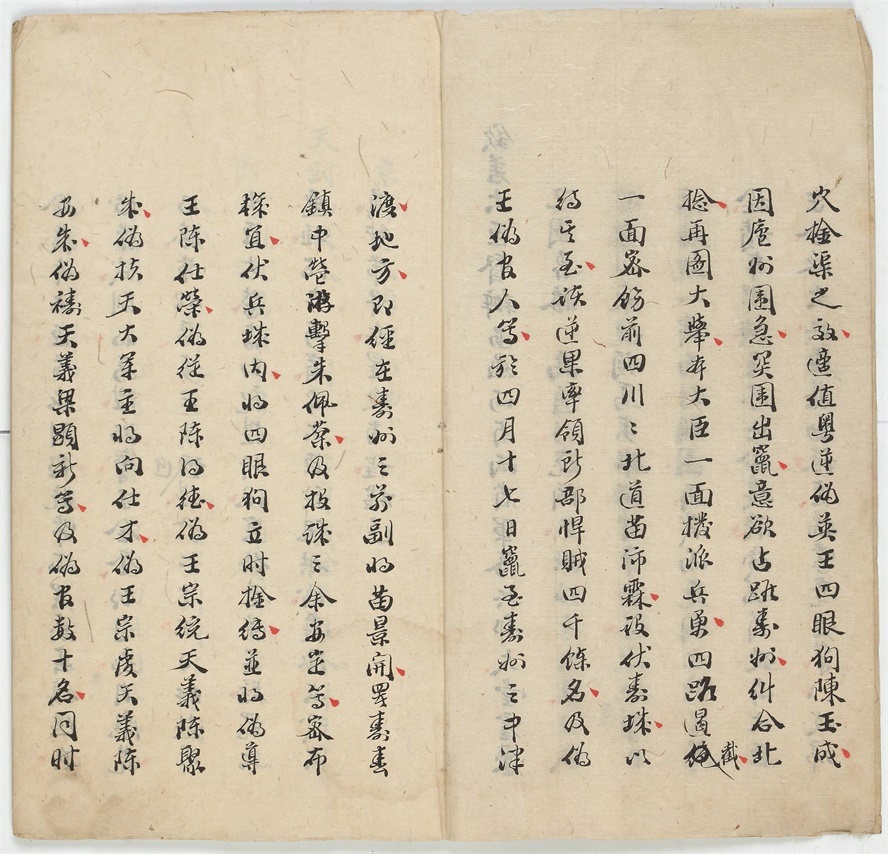 穴擒渠之效適值粤逆偽英王四眼狗陳玉成
因廬州圍急突圍出竄意欲占踞壽州糾合北
捻再圖大舉本大臣一面撥派兵勇四路遏截
一面密飭前四川川北道苗沛霖設伏壽城以
待其至該逆果率領所部悍賊四千餘名及偽
王偽官人等於四月十七日竄至壽州之中津
渡地方即經在壽州之前副將苗景開署壽春
鎮中營游擊朱佩棻及投誠之余安定等密布
探宜伏兵城内將四眼狗立時擒縛並將偽導
王陳仕榮偽從王陳得德偽王宗統天義陳聚
成偽扶天大軍主將向仕才偽王宗虔天義陳
安成偽禱天義梁顯新等及偽官數十名同时